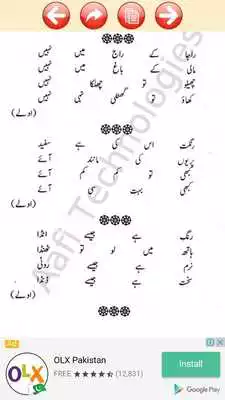 راجا کے راج میں نہیں
مالی کے باغ میں نہیں
چھیلو تو چھلکا نہیں
کھاؤ تو گٹھلی بھی نہیں
(اولے)
رنگت اس کی ہے سفید
پریوں کی مانند آئے
کبھی تو کم کم آئے
کبھی بہت سی آئے
(اولے)
رنگ ہے جیسے انڈا
ہاتھ میں لو تو ٹھنڈا
نرم ہے جیسے روئی
سخت ہے جیسے ڈنڈا
(اولے)
Aafi Technologies
Ad
OLX
OLX Pakistan
FREE (12,831)
Install
Google Play